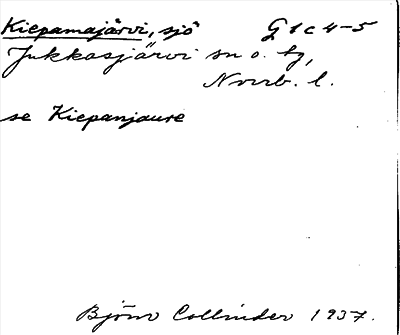 Kiepamajärvi, sjö G 1 c 4-5
Jukkasjärvi sn o. tg,
Norrb. l.
se Kiepanjaure
Björn Collinder 1937.